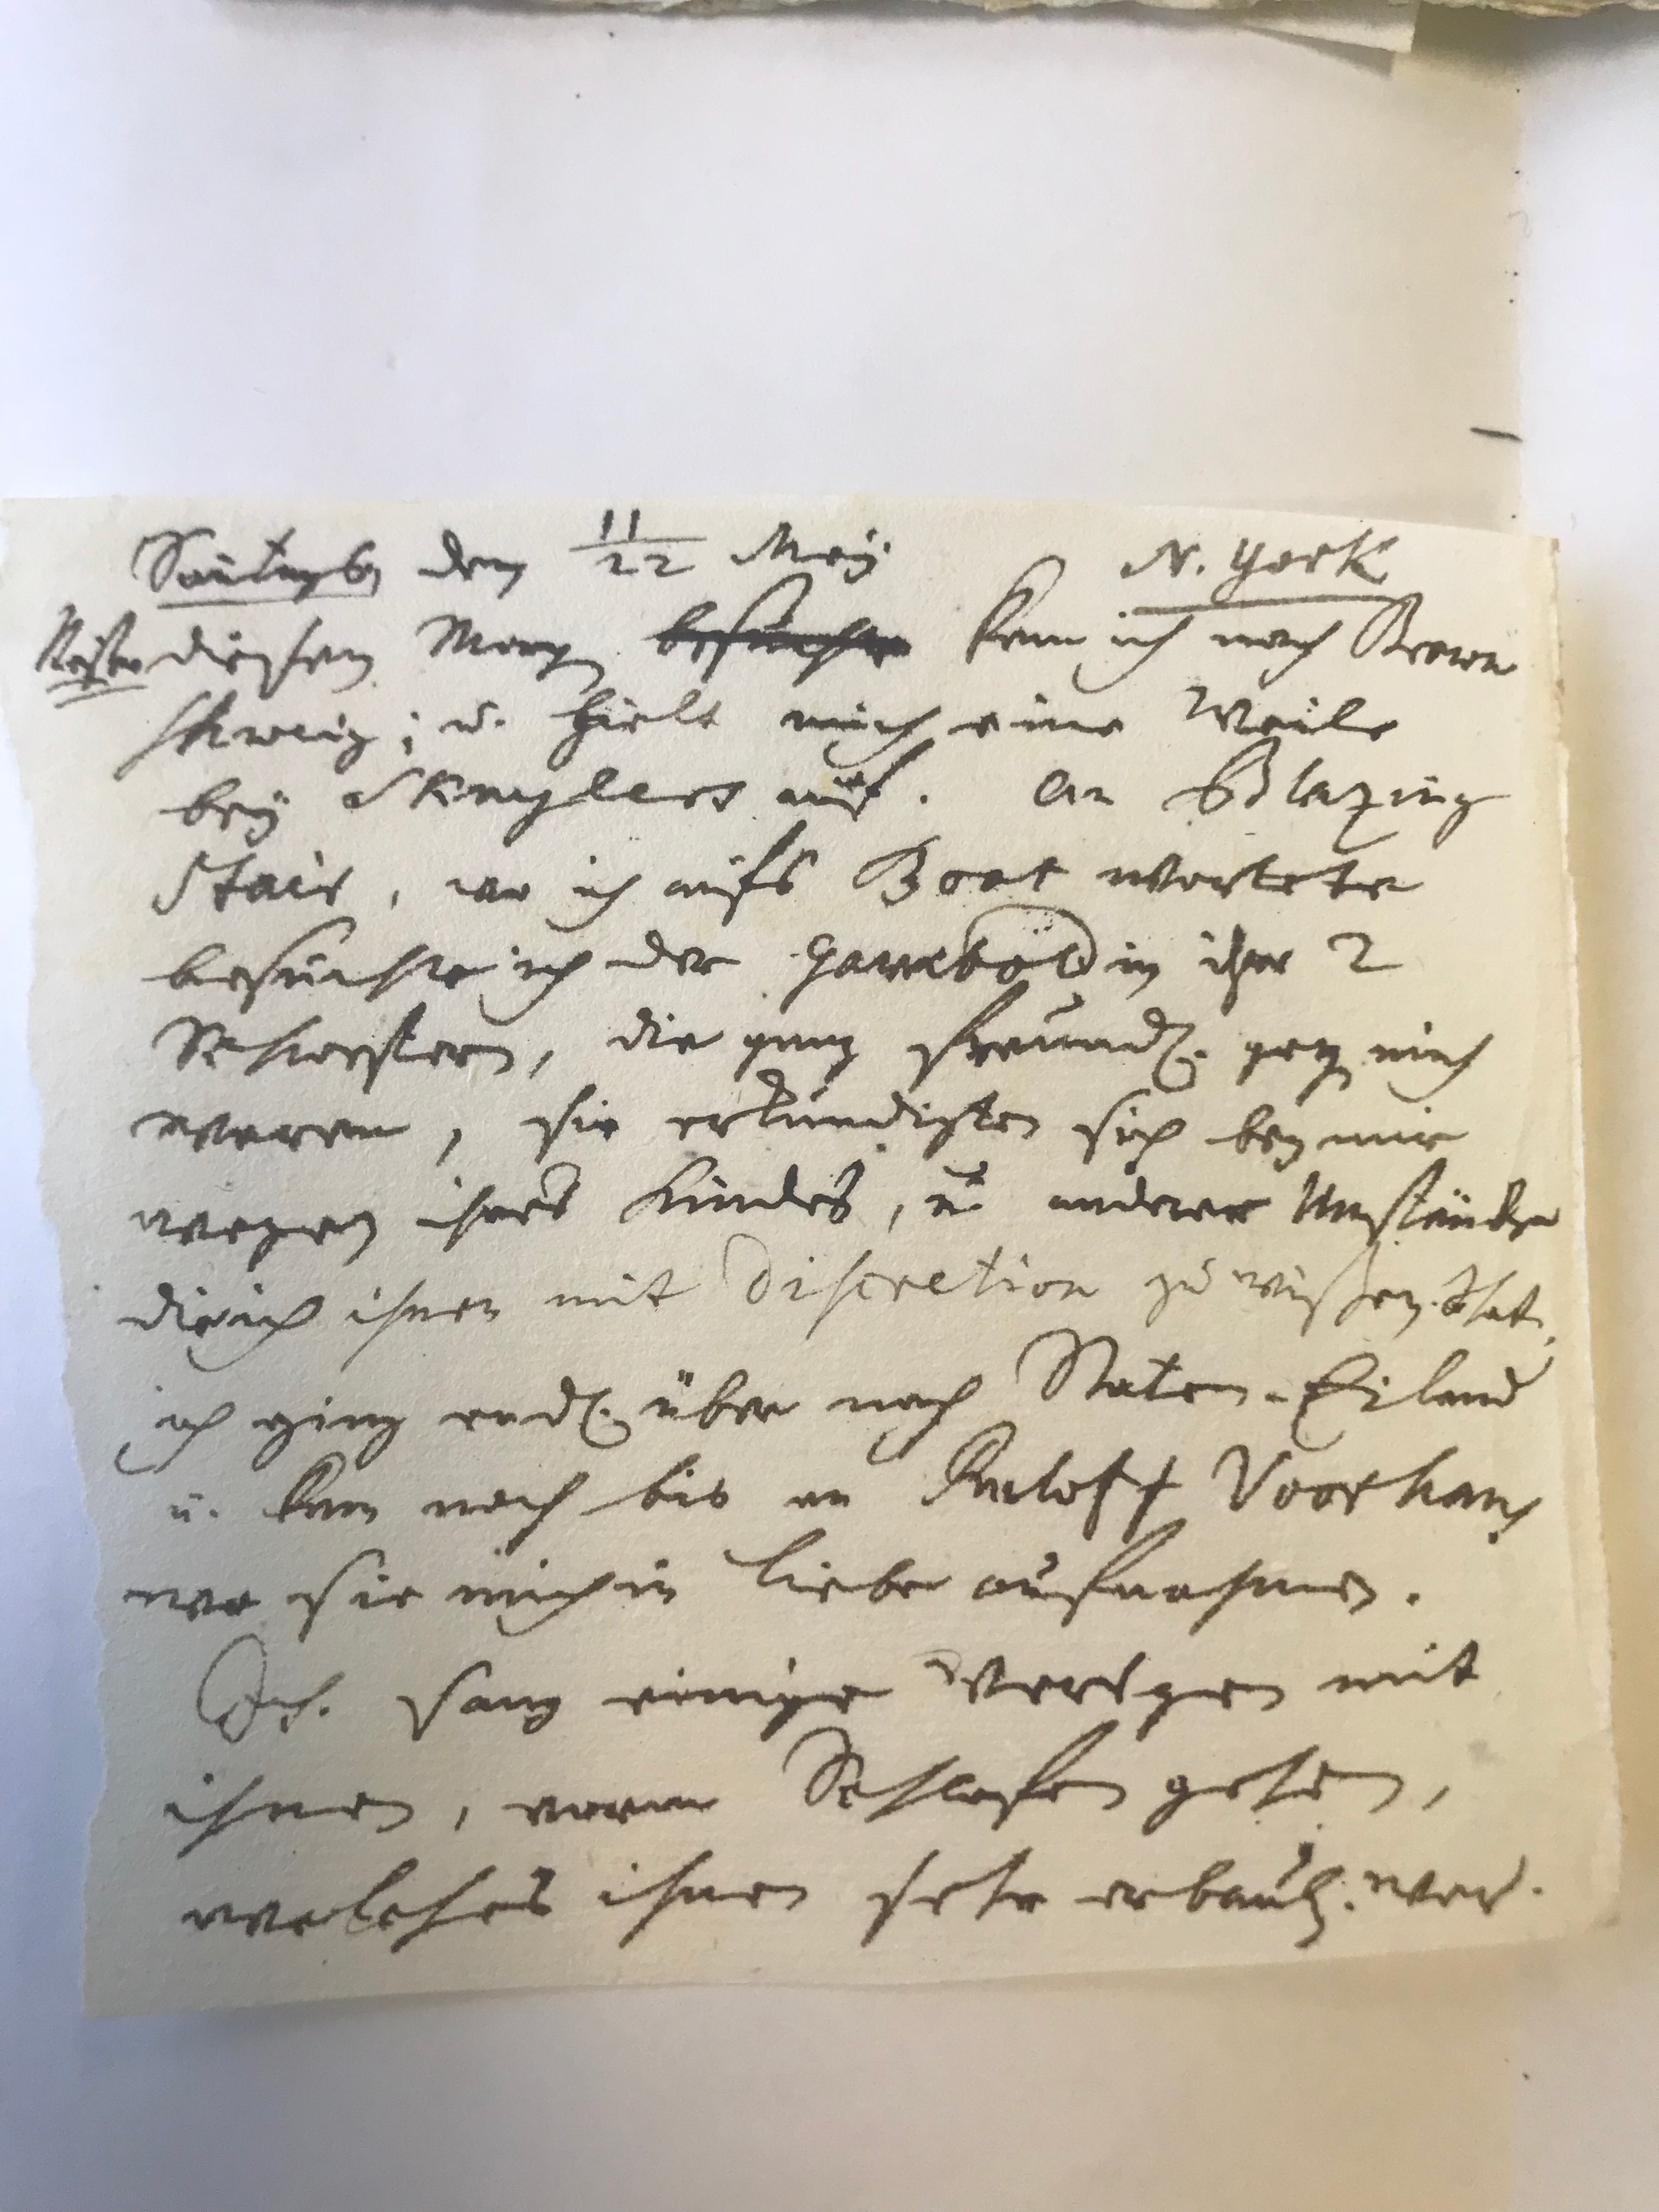 Sontags den 11/22 Mey N. York
diesen Morg. besuchte kam ich nach Braun
schweig; u. hielt mich eine Weile
bey Skuylers auf. An Blazing
Stair, wo ich aufs Boat wartete
besuchte ich der Garrboldin ihre 2
Schwestern, die ganz freundl. geg. mich
waren, sie erkundigten sich bey mir
wegen ihres Kindes, u. anderer Umstände
die ich ihnen mit Discretion zu wissen that.
ich ging endl. über nach Staten-Eiland
u. kam noch bis an Ruloff Voorhans
wo sie mich in Liebe aufnahmen.
Ich sang einige Versgen mit
ihnen, vorm Schlafen gehen,
welches ihnen sehr erbaul. war.